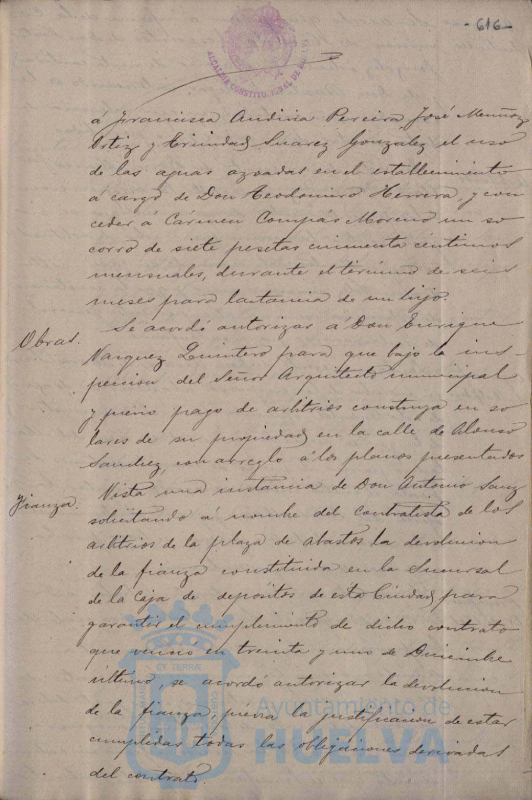 - 616 -
ALCALDIA CONSTITUCIONAL DE HUELVA
á Francisca Andivia Pereira, José Muñoz
Ortiz y Trinidad Suarez Gonzalez el uso
de las aguas azoadas en el establecimiento
á cargo de Don Teodomiro Herrera, y con
ceder á Cármen Compás Moreno un so
corro de siete pesetas cincuenta céntimos
mensuales, durante el término de seis
meses para lactancia de un hijo.
Obras.
Se acordó autorizar á Don Enrique
Vazquez Quintero para que bajo la ins-
peccion del Señor Arquitecto municipal
y previo pago de arbitrios construya en so
lares de su propiedad en la calle de Alonso
Sanchez con arreglo á los planos presentados
Fianza.
Vista una instancia de Don Antonio
solicitando á nombre del contratista de los
arbitrios de la plaza de abastos la devolucion
de la fianza constituida en la Sucursal
de la Caja de depósitos de esta Ciudad para
garantir el cumplimento de dicho contrato
que venció en treinta y uno de Diciembre
último, se acordó autorizar la devolucion
de la fianza, prévia la justificacion de estar
cumplidas todas las obligaciones derivadas
del contrato.
Ayuntamiento de
HUELVA